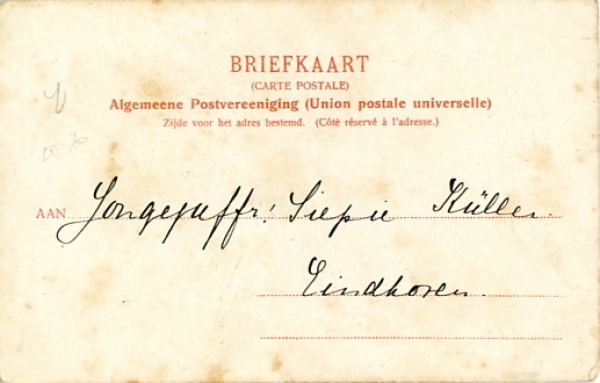 BRIEFKAART
(CARTE POSTALE)
Algemeene Postvereeniging (Union postale universelle)
Zijde voor het adres bestemd. (Côté réservé à l'adresse.)
AAN Jongejuffr: Siepie Küller.
Eindhoven.